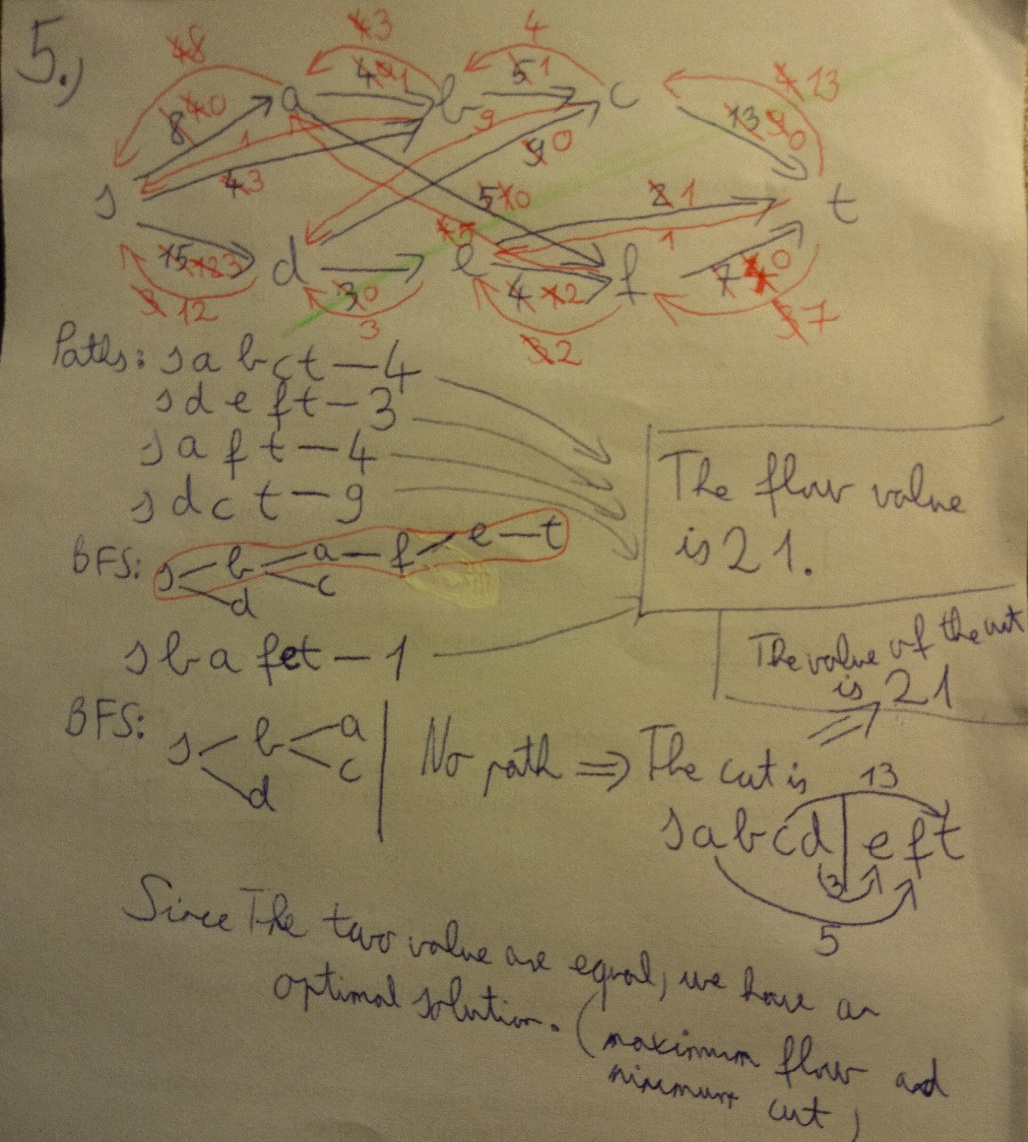 5.)
48 43 4
8 4 0 a 4 0 1 b 5 1 c 4 13
1 9 13 9 0
s 4 3 9 0 5 1 0 2 1 t
15 12 3 d 3 0 e 4 1 2 f 7 4 0
3 12 3 3 2 3 7
1
Paths: s a b c t – 4
s d e f t – 3
s a f t – 4
s d c t – 9
The flow value
is 21.
BFS: s b a f e t
d c
s b a f e t – 1
The value of the cut
is 21
BFS: s b a
d c
No path ⇒ The cut is
13
s a b c d | e f t
3
5
Since The two value are equal, we have an
optimal solution. (maximum flow and
minimum cut)